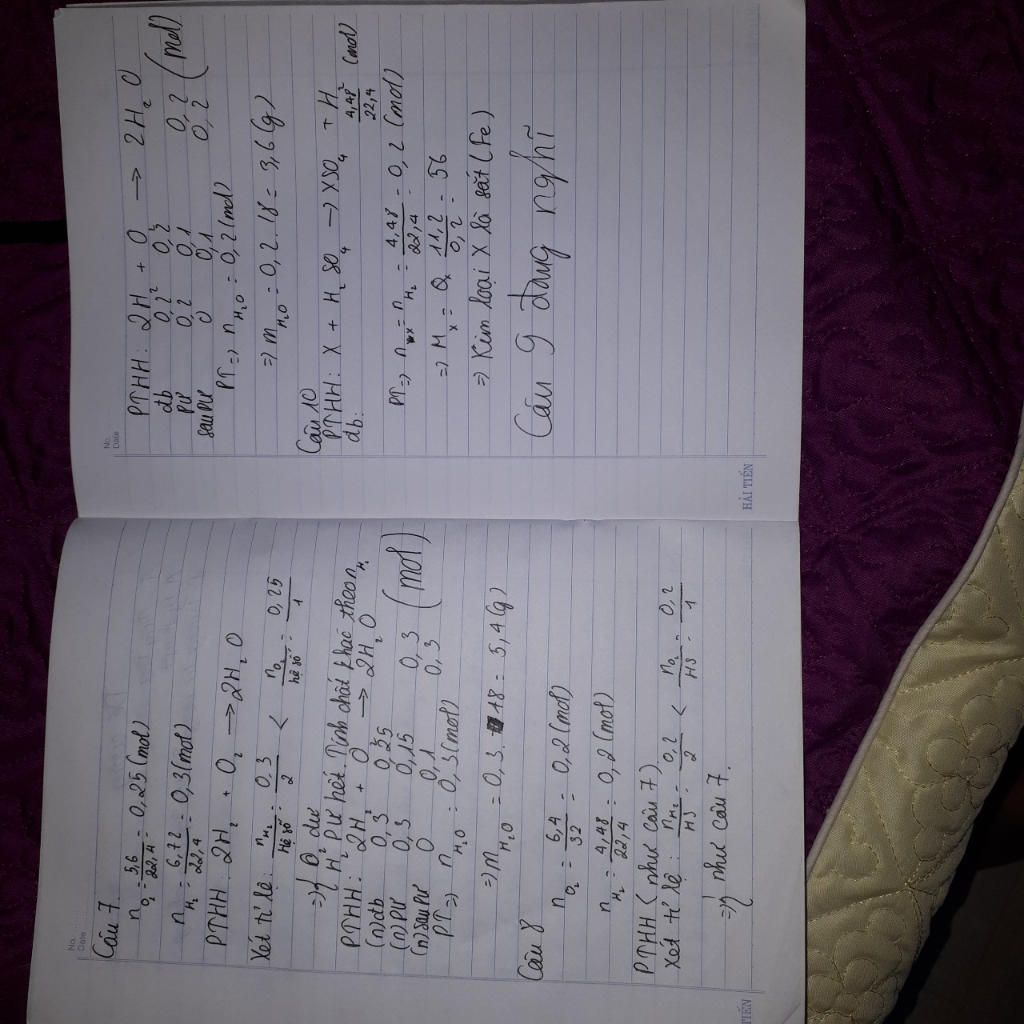 No.
Date
Câu 7
n O₂ = 5,6/22,4 = 0,25 (mol)
n H₂ = 6,72/22,4 = 0,3 (mol)
PTHH: 2H₂ + O₂ → 2H₂O
Xét tỉ lệ: n H₂/hệ số = 0,3/2 < n O₂/hệ số = 0,25/1
=> { O₂ dư
H₂ PƯ hết. Tính chất khác theo n H₂
PTHH: 2H₂ + O₂ → 2H₂O
(n) db 0,3 0,25
(n) PƯ 0,3 0,15 0,3
(n) sau PƯ 0 0,1 0,3 (mol)
PT => n H₂O = 0,3 (mol)
=> m H₂O = 0,3 . 18 = 5,4 (g)
Câu 8
n O₂ = 6,4/32 = 0,2 (mol)
n H₂ = 4,48/22,4 = 0,2 (mol)
PTHH < như câu 7)
Xét tỉ lệ: n H₂/HS = 0,2/2 < n O₂/HS = 0,2/1
=> { như câu 7.
TIẾN
No.
Date
PTHH: 2H₂ + O₂ → 2H₂O
db 0,2 0,2
PƯ 0,2 0,1 0,2
sau PƯ 0 0,1 0,2 (mol)
PT => n H₂O = 0,2 (mol)
=> m H₂O = 0,2 . 18 = 3,6 (g)
Câu 10
PTHH: X + H₂SO₄ → XSO₄ + H₂
db: 4,48/22,4 (mol)
PT => n X = n H₂ = 4,48/22,4 = 0,2 (mol)
=> M X = 11,2/0,2 = 56
=> Kim loại X là sắt (Fe)
Câu 9 đang nghĩ
HẢI TIẾN